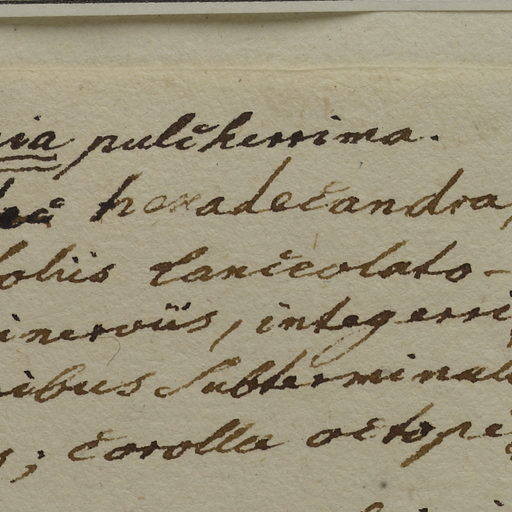 nia pulcherrima.
hexadecandra,
foliis lanceolato-
inerviis, integerri
nibus subterminal
s; corolla octope